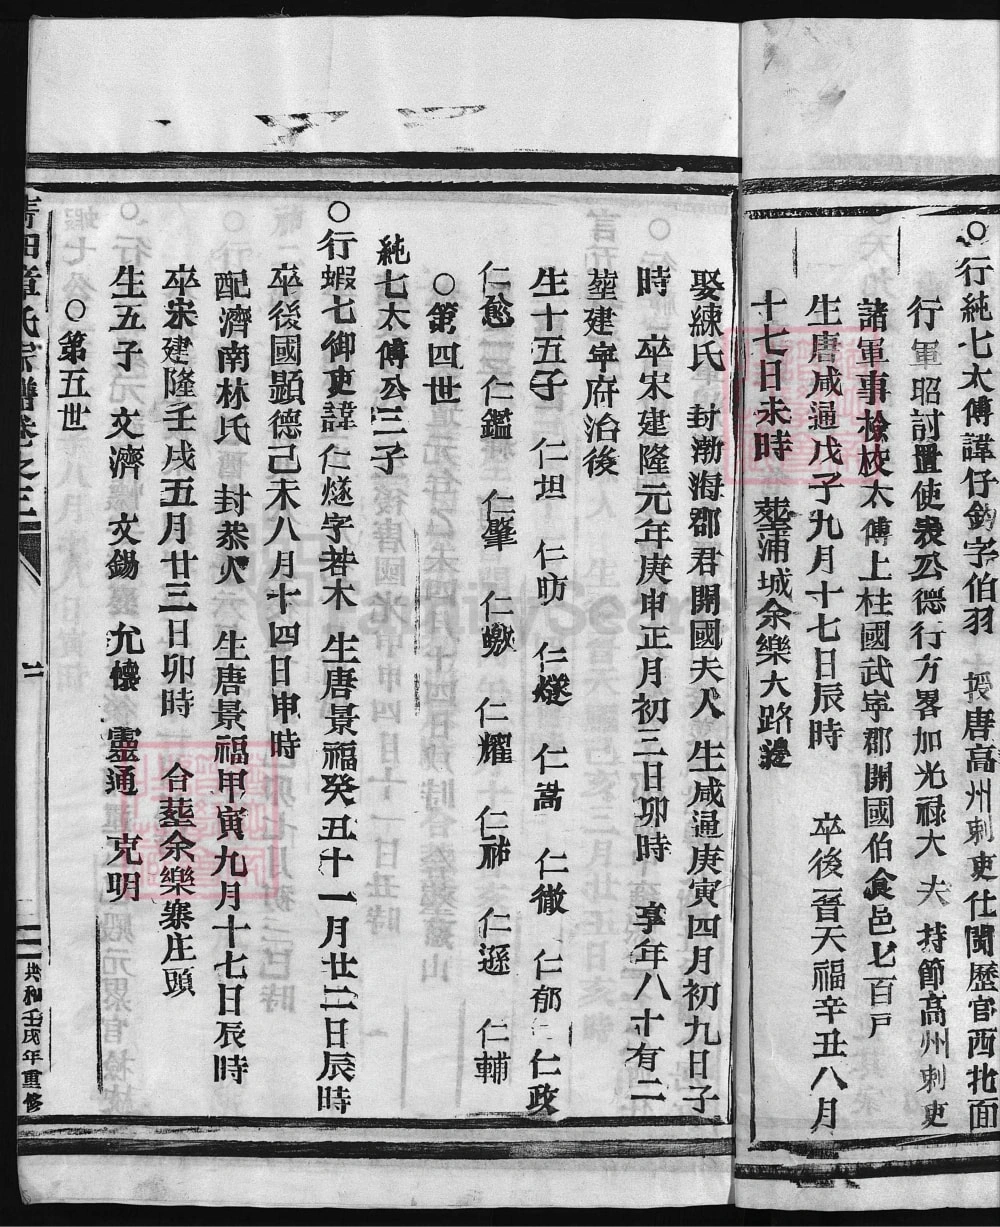 ○行純七太傅諱仔鈞字伯羽 授唐高州刺吏仕閩歷官西北面
行軍昭討置使表公德行方畧加光禄大夫 持節高州刺吏
諸軍事檢校太傅上柱國武寧郡開國伯食邑七百戸
生唐咸通戊子九月十七日辰時 卒後晉天福辛丑八月
十七日未時 塟浦城余樂大路邊
娶練氏 封渤海郡君開國夫人 生咸通庚寅四月初九日子
時 卒宋建隆元年庚申正月初三日卯時 享年八十有二
塟建寜府治後
生十五子 仁坦 仁昉 仁燧 仁嵩 仁徹 仁郁 仁政
仁愈 仁鑑 仁肇 仁皦 仁耀 仁祐 仁遜 仁輔
○第四世
純七太傅公三子
○行蝦七御吏諱仁燧字若木 生唐景福癸丑十一月廿二日辰時
卒後國顯德己未八月十四日申時
配濟南林氏 封恭人 生唐景福甲寅九月十七日辰時
卒宋建隆壬戌五月廿三日卯時 合塟余樂寨庄頭
生五子 文濟 文錫 允懷 靈通 克明
○第五世
青田章氏宗譜卷之三
共和壬戌年重修